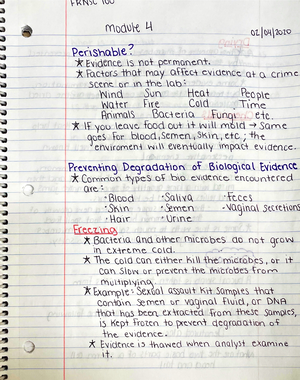 FRNSC 100
Module 4
02/04/2020
Perishable?
* Evidence is not permanent.
* Factors that may affect evidence at a crime
scene or in the lab:
Wind Sun Heat People
Water Fire Cold Time
Animals Bacteria Fungi etc.
* IF you leave food out it will mold → Same
goes for blood, semen, skin, etc.; the
enviroment will eventually impact evidence.
Preventing Degradation of Biological Evidence
* Common types of bio evidence encountered
are:
• Blood • Saliva • Feces
• Skin • Semen • Vaginal secretions
• Hair • Urine
Freezing
* Bacteria and other microbes do not grow
in extreme cold.
* The cold can either kill the microbes, or it
can slow or prevent the microbes from
multiplying.
* Example: Sexual assault kit samples that
contain semen or vaginal fluid, or DNA
that has been extracted from these samples,
is kept frozen to prevent degradation of
the evidence.
* Evidence is thawed when analyst examine
it.